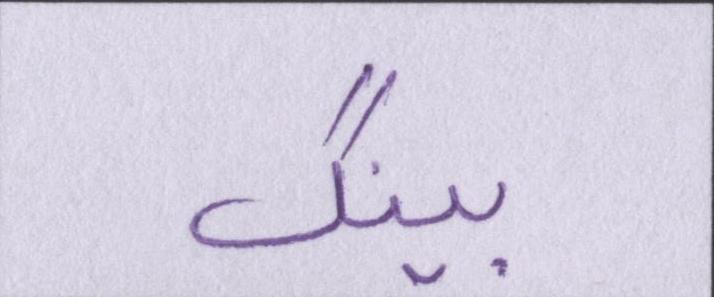 بینگ